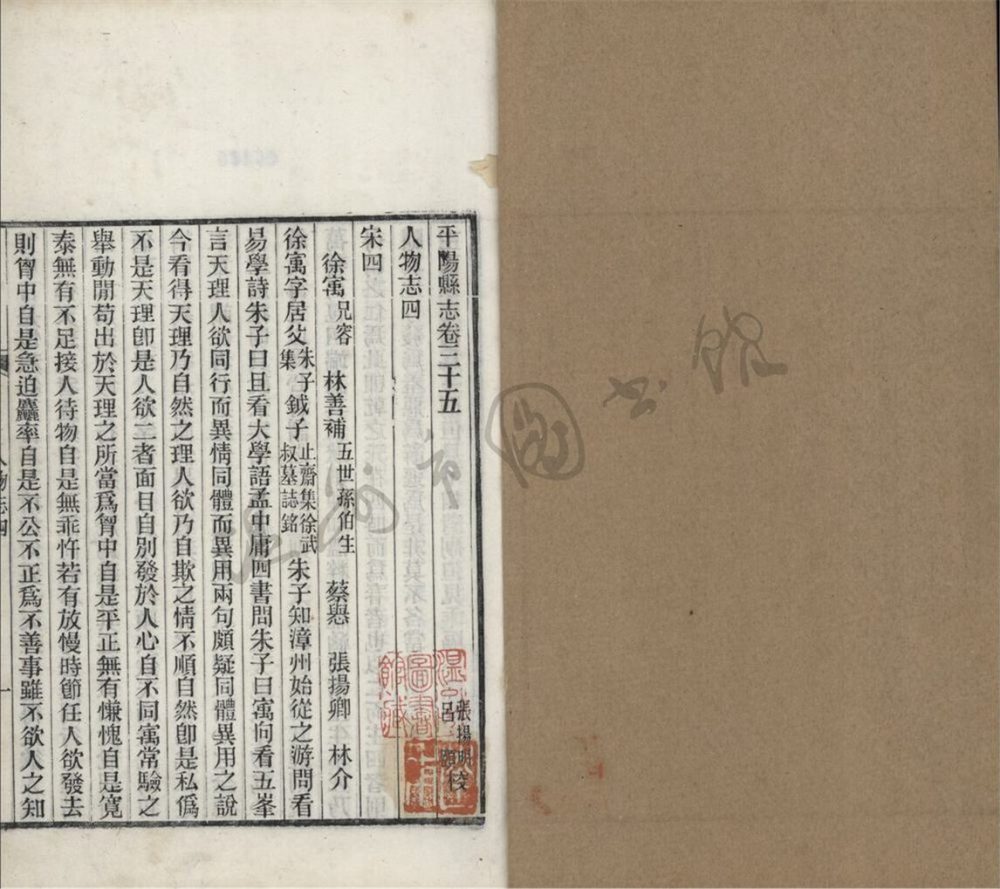 平陽縣志卷三十五
張揚明校
人物志四
宋四
徐㝢 兄容 林善補 五世孫伯生 蔡懋 張揚卿 林介
徐㝢字居父 朱子集 鉞子 止齋集徐武叔墓誌銘 朱子知漳州始從之游問看
易學詩朱子曰且看大學語孟中庸四書問朱子曰㝢向看五峯
言天理人欲同行而異情同體而異用兩句頗疑同體異用之說
今看得天理乃自然之理人欲乃自欺之情不順自然卽是私僞
不是天理卽是人欲二者面目自別發於人心自不同㝢常驗之
舉動閒苟出於天理之所當爲胷中自是平正無有慊愧自是寬
泰無有不足接人待物自是無乖忤若有放慢時節任人欲發去
則胷中自是急迫麤率自是不公不正爲不善事雖不欲人之知
人物志四
一
溫州市圖書館